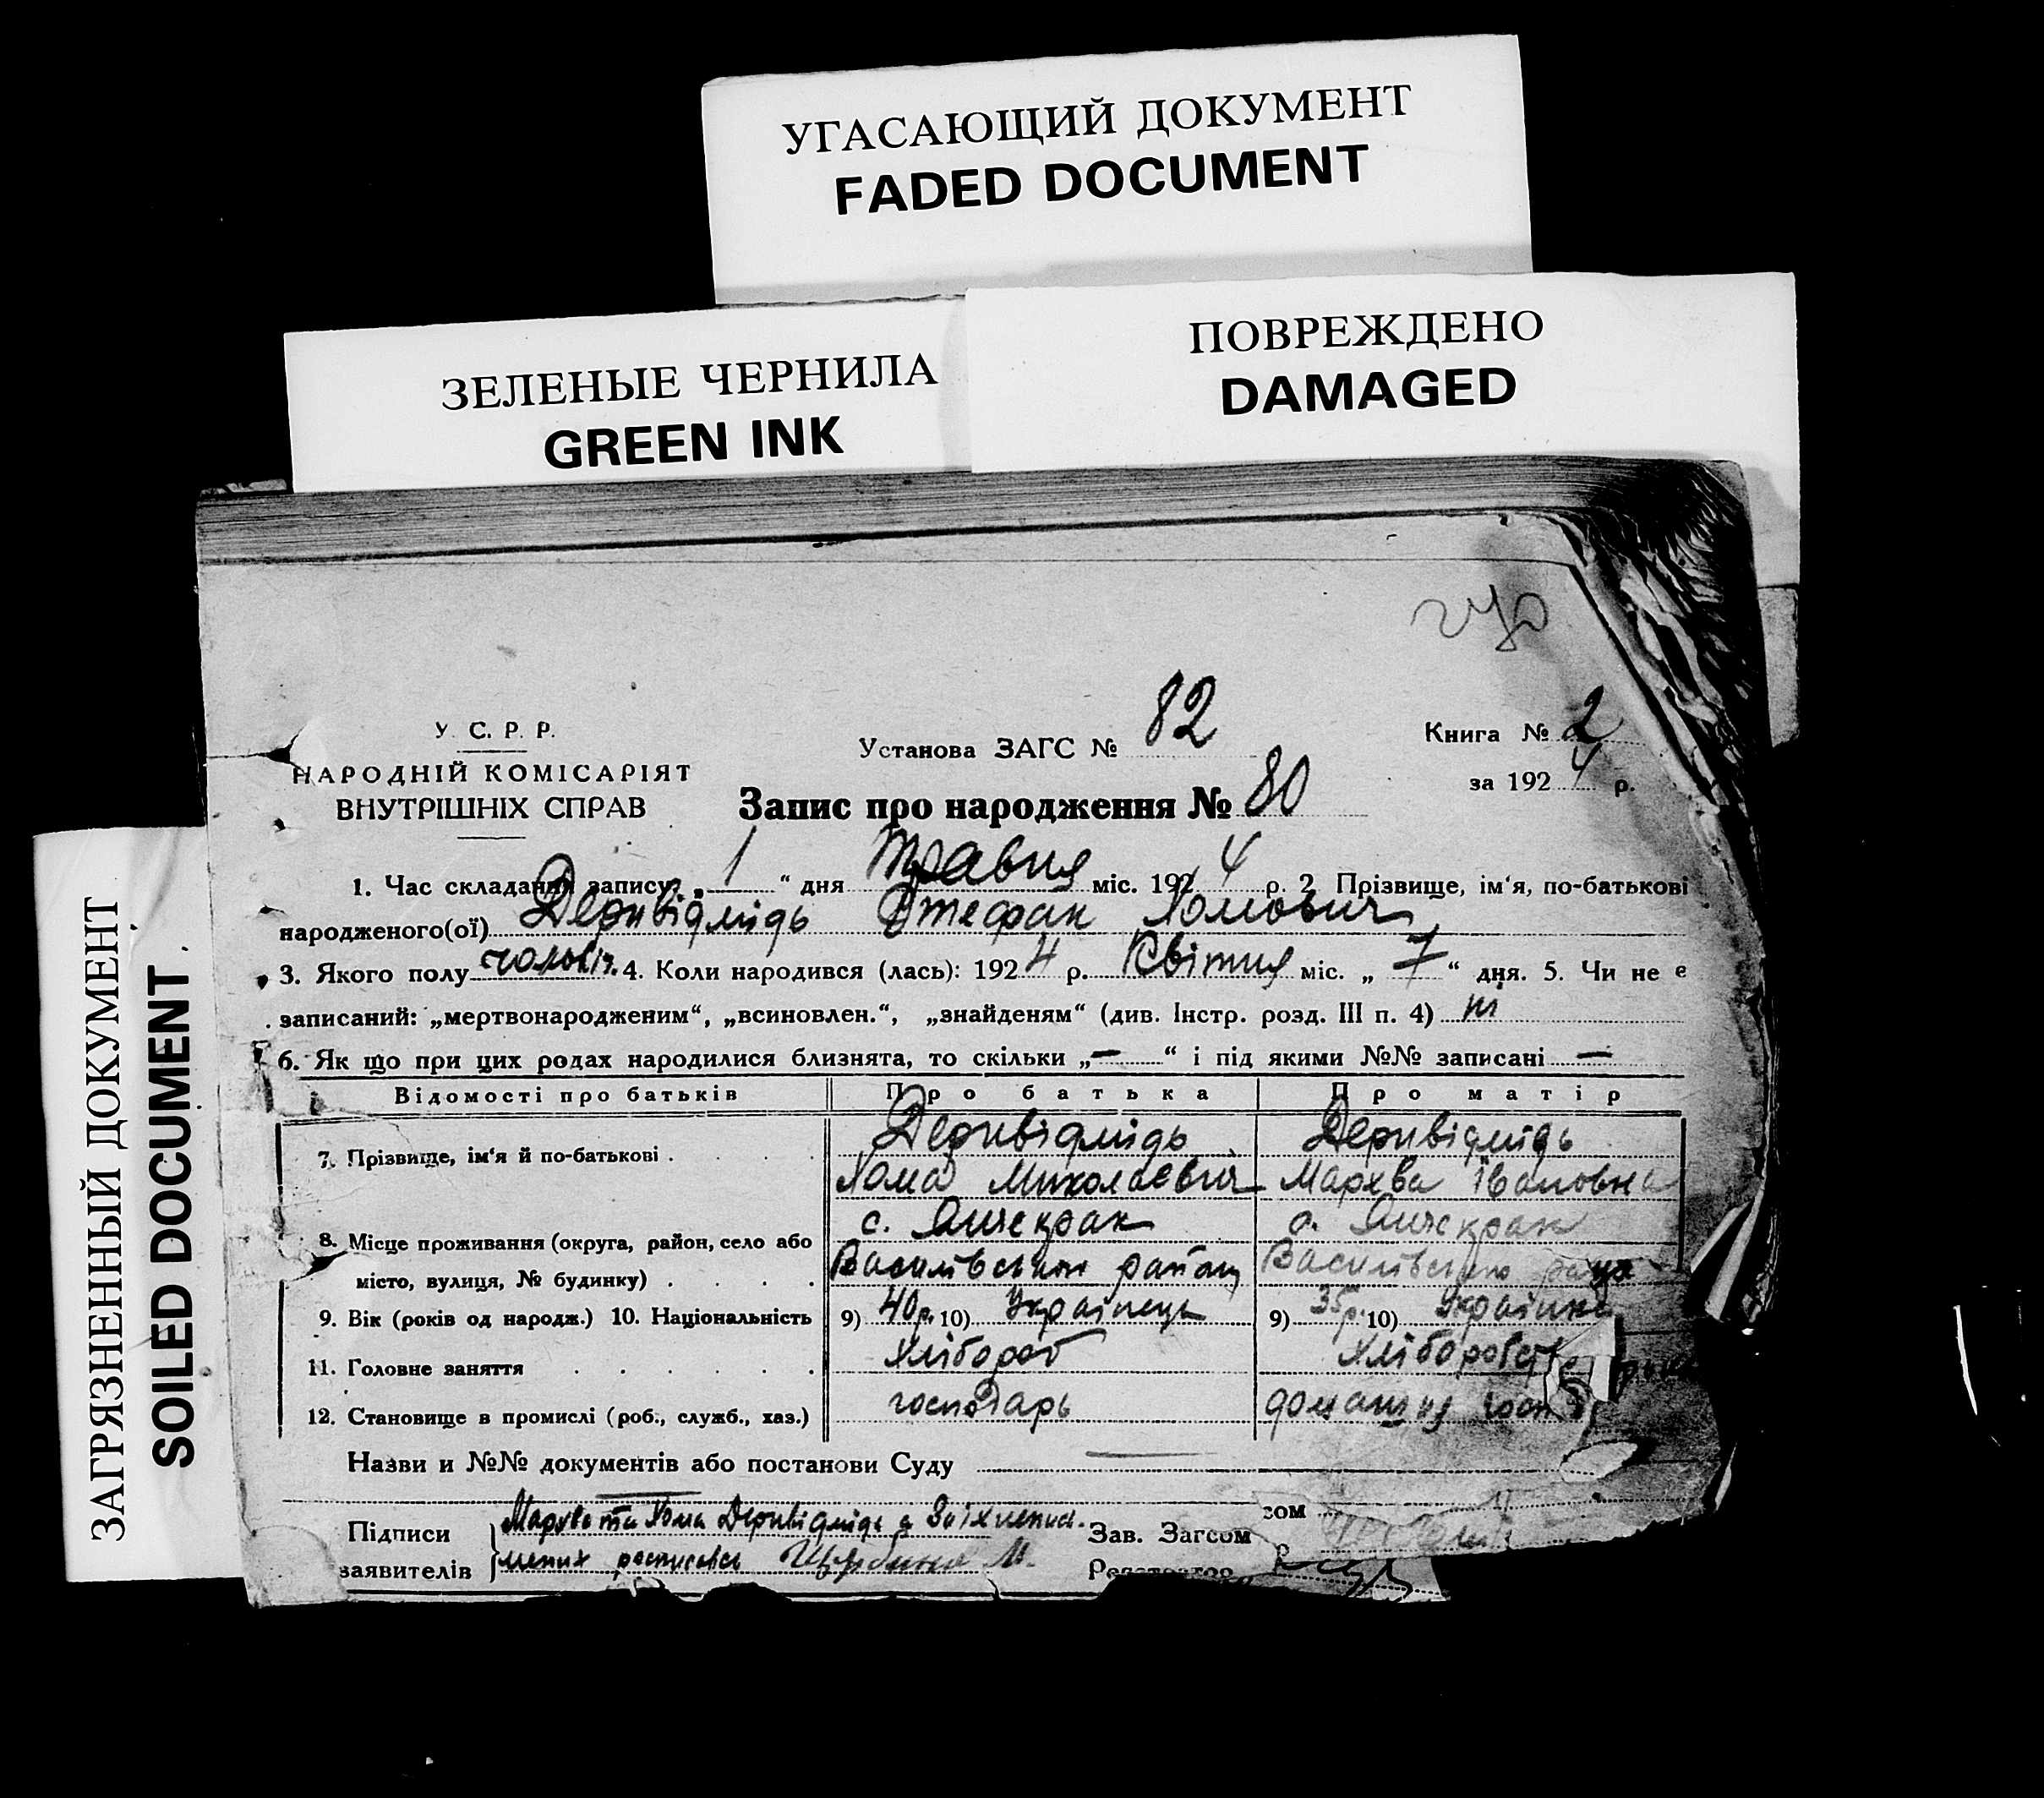 УГАСАЮЩИЙ ДОКУМЕНТ
FADED DOCUMENT
ПОВРЕЖДЕНО
DAMAGED
ЗЕЛЕНЫЕ ЧЕРНИЛА
GREEN INK
ЗАГРЯЗНЕННЫЙ ДОКУМЕНТ
SOILED DOCUMENT
У. С. Р. Р.
НАРОДНІЙ КОМІСАРІЯТ
ВНУТРІШНІХ СПРАВ
Установа ЗАГС № 82
Книга № 2
за 1924 р.
Запис про народження № 80
1. Час складання запису: „1“ дня травня міс. 1924 р. 2 Прізвище, ім‘я, по-батькові
народженого(ої) Деривідмідь Стефан Хомович
3. Якого полу чоловіч. 4. Коли народився (лась): 1924 р. Квітня міс. „7“ дня. 5. Чи не є
записаний: „мертвонародженим“, „всиновлен.“, „знайденям“ (див. Інстр. розд. III п. 4)
6. Як що при цих родах народилися близнята, то скільки „—“ і під якими №№ записані —
Відомості про батьків Про батька Про матір
7. Прізвище, ім‘я й по-батькові . . . . Деривідмідь Хома Миколаєвич Деривідмідь Мархва Івановна
8. Місце проживання (округа, район, село або
місто, вулиця, № будинку) . . . . с. Янчекрак Василівського району с. Янчекрак Василівського
9. Вік (років од народж.) 10. Національність 9) 40 р. 10) Українець 9) 35 р. 10) Українка
11. Головне заняття . . . . . . Хлібороб
12. Становище в промислі (роб., служб., хаз.) господарь домашня
Назви и №№ документів або постанови Суду —
Підписи
заявителів
Мархва та Хома Деривідмідь а За їх непись-
мених росписавсь
Зав. Загсом